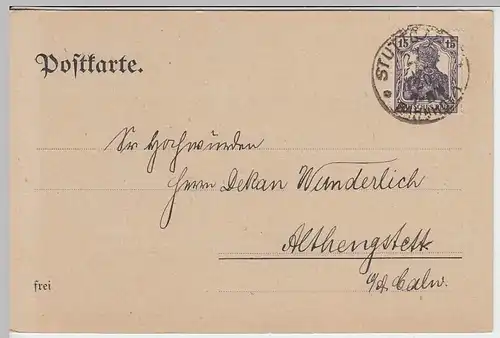 15 15
STUTTG
Postkarte.
Sr Hochwürden
Herrn Dekan Wunderlich
Althengstett
a/d. Calw.
frei